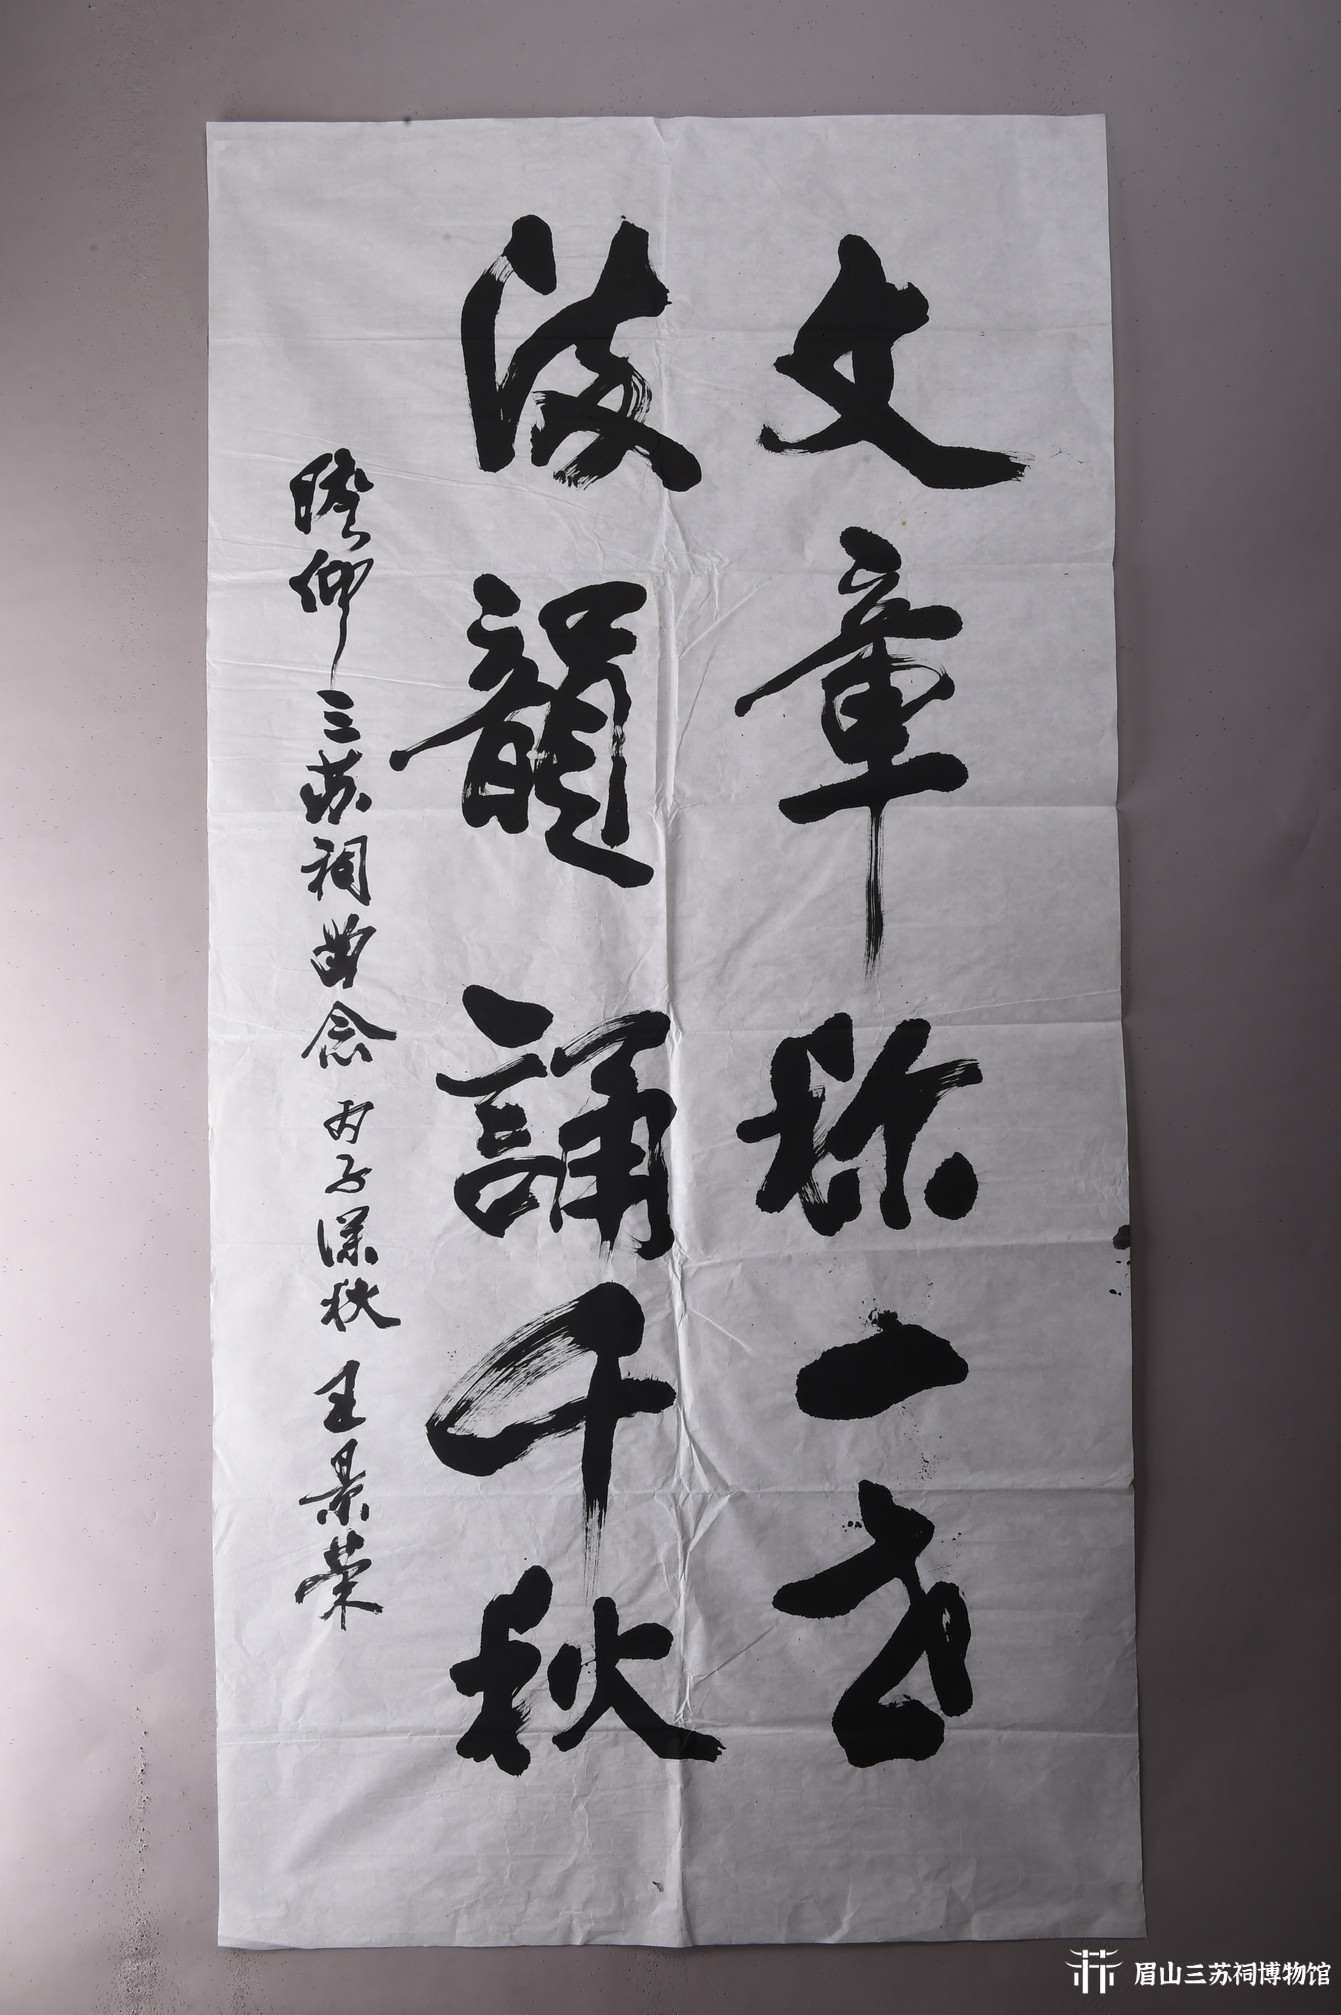 文章称一世
流韻誦千秋
瞻仰三苏祠典念 丙子深秋 王景荣
眉山三苏祠博物馆